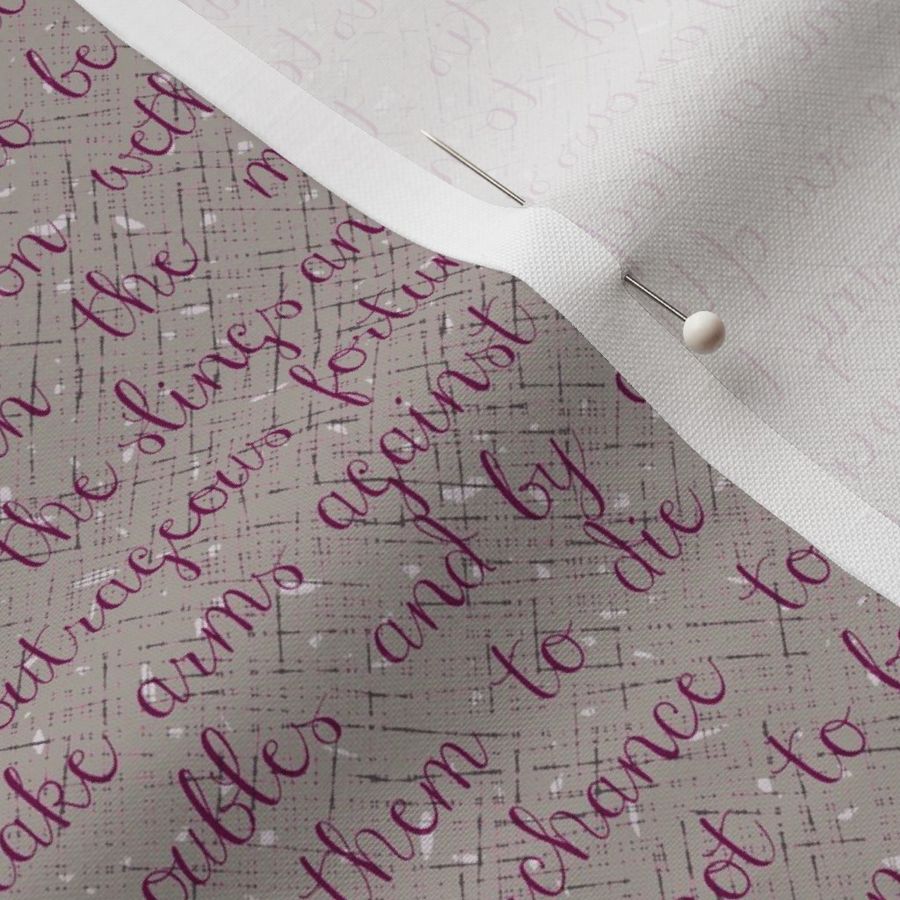 o be
on weth
in the m
the slings an
outrageous fortun
take arms against
oubles and by
them to die
chance to
ot to b